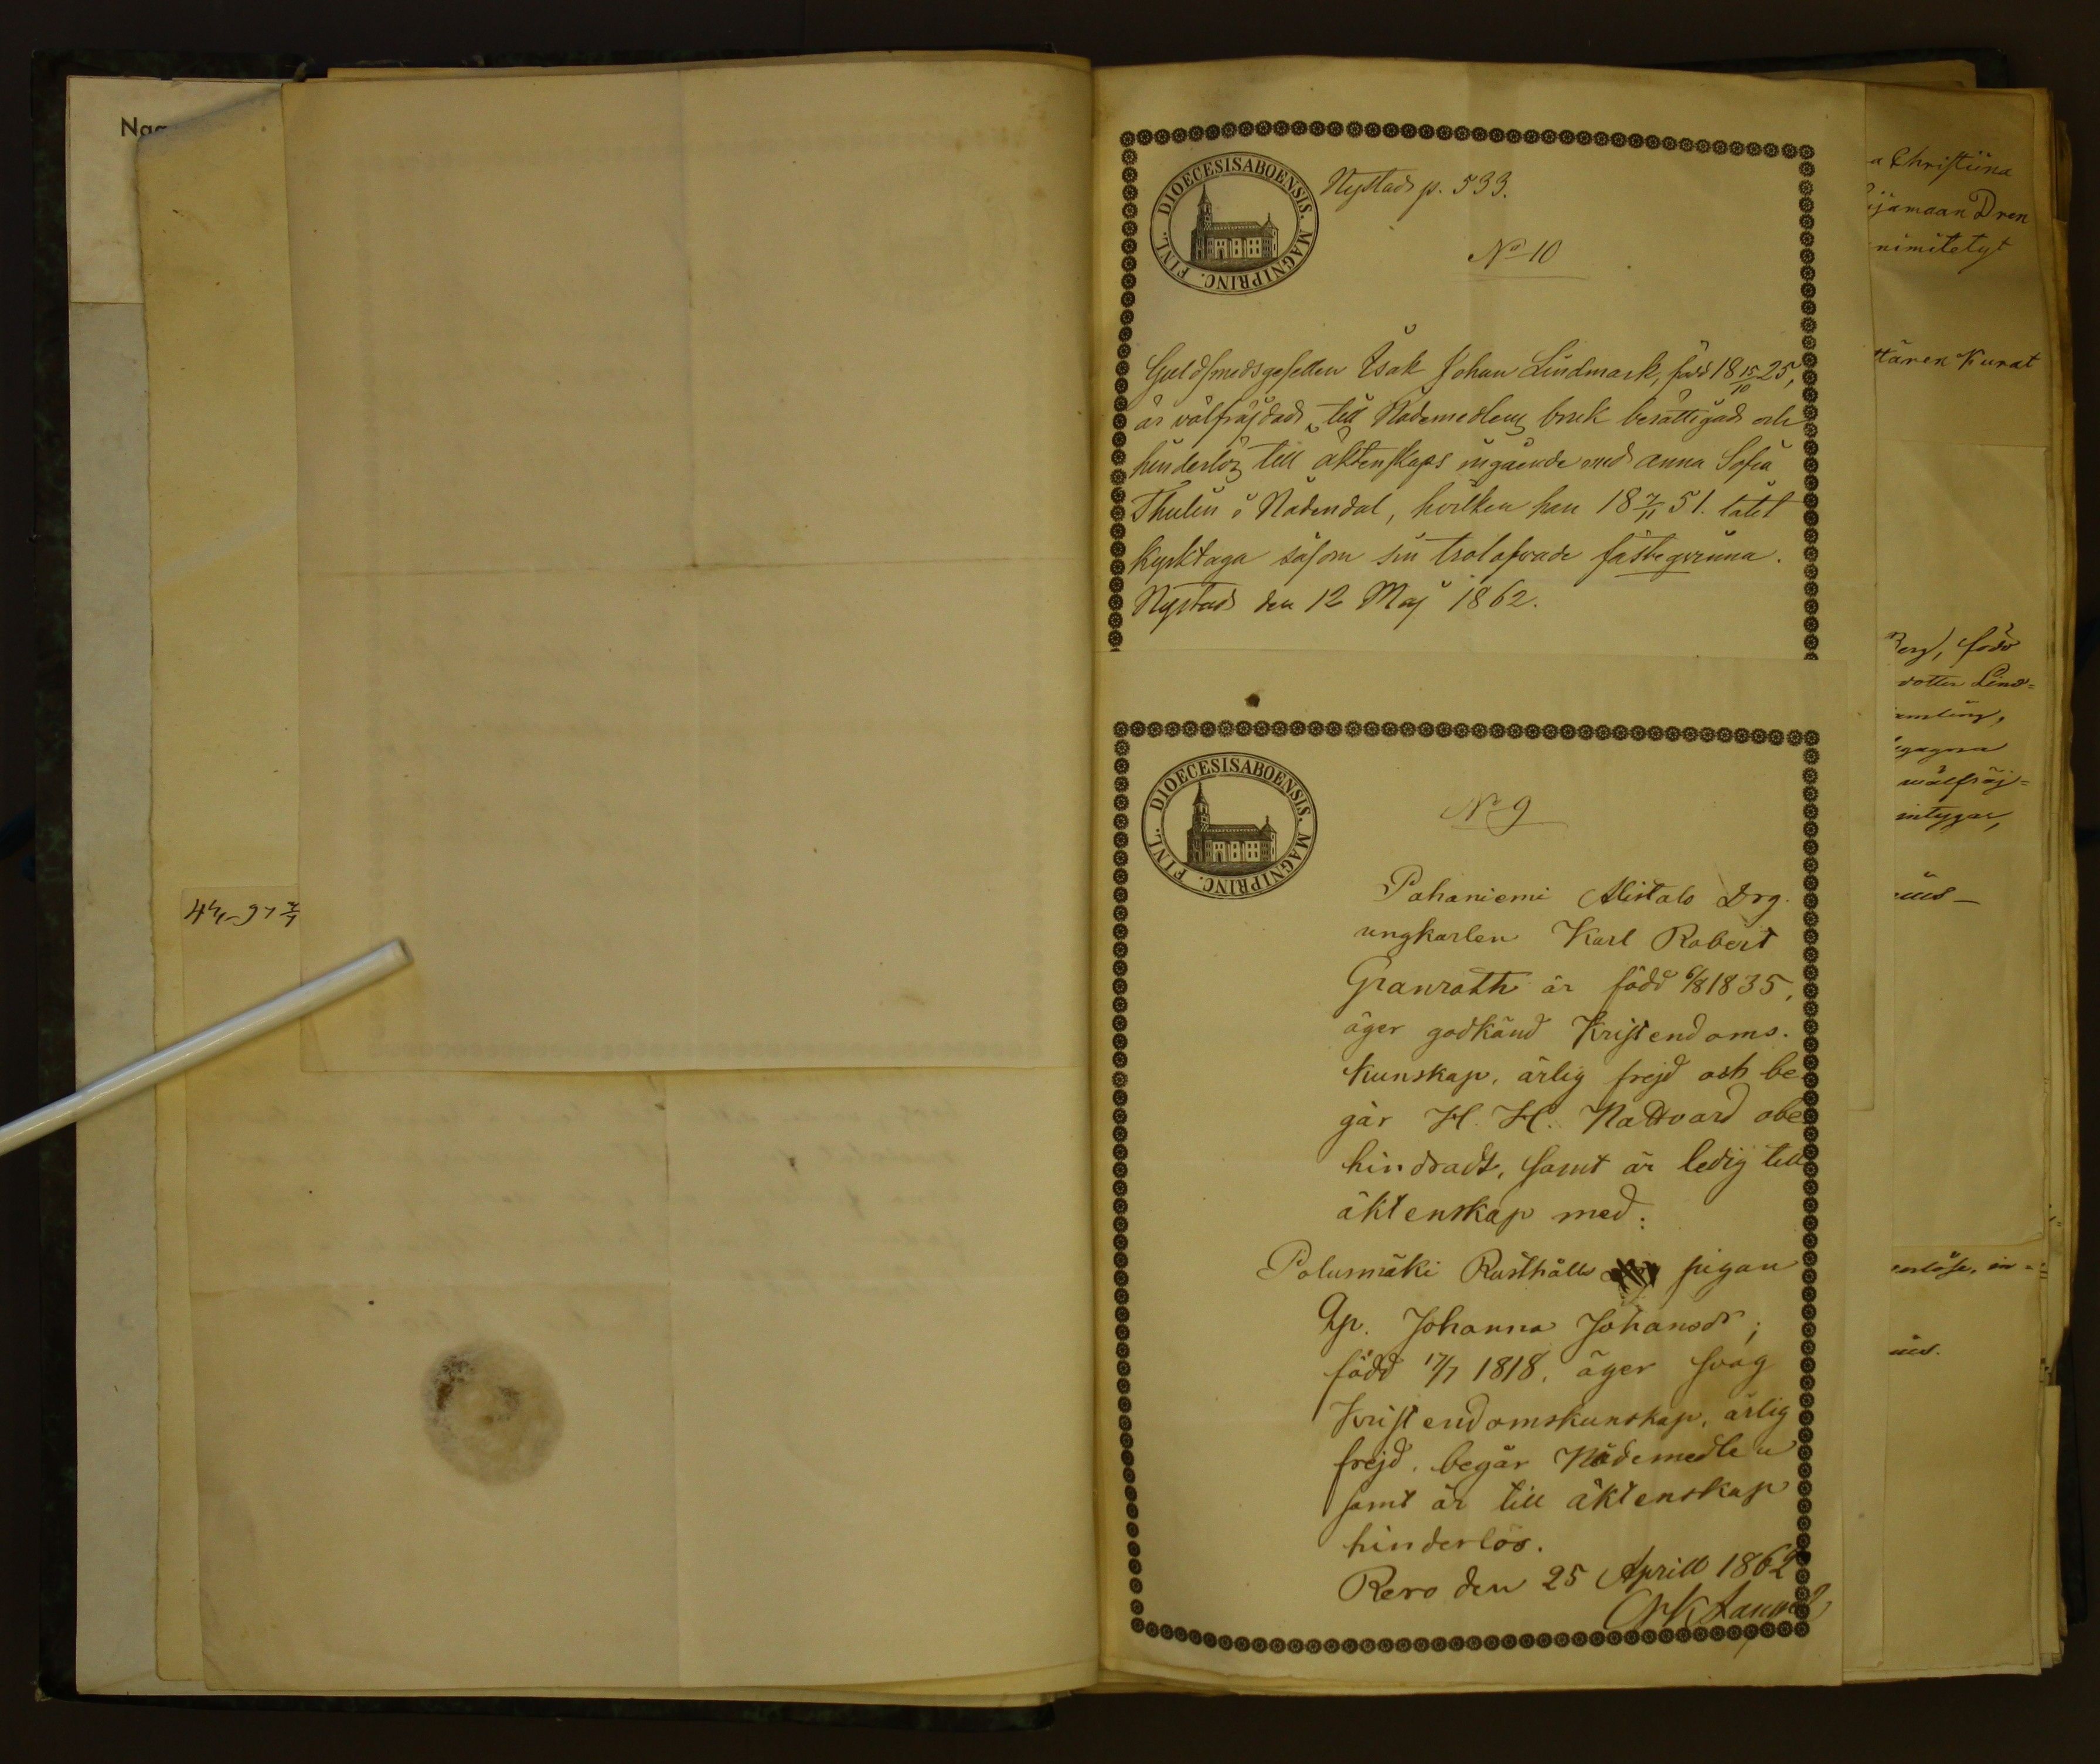 Nag
4
DIOECESIS ABOENSIS. MAGNI PRINC. FINL.
Nystad p. 533.
No 10
Guldsmedsgesellen Isak Johan Lindmark, född 18 15/10 25,
är välfräjdad, till Nådemedlens bruk berättigad och
hinderlös till äktenskaps ingående med Anna Sofia
Thulin i Nådendal, hvilken han 18 7/11 51. låtit
kyrktaga såsom sin trolofvade fästeqvinna.
Nystad den 12 Maj 1862.
DIOECESIS ABOENSIS. MAGNI PRINC. FINL.
No 9
Pahaniemi Alistalo Drg.
ungkarlen Karl Robert
Granroth är född 6/8 1835,
äger godkänd Kristendoms-
kunskap, ärlig frejd och be-
går H. H. Nattvard obe-
hindradt, samt är ledig till
äktenskap med:
Polusmäki Rusthålls pigan
Qp. Johanna Johansdr;
född 17/7 1818, äger svag
Kristendomskunskap, ärlig
frejd, begår Nådemedlen
samt är till äktenskap
hinderlös.
Reso den 25 Aprill 1862
a Christiina
ijamaan Dren
nimitetyt
ttären Kurat
Berg, född
dotter Lind-
samling,
egagna
wälfräj-
intygar,
erlöse, in-